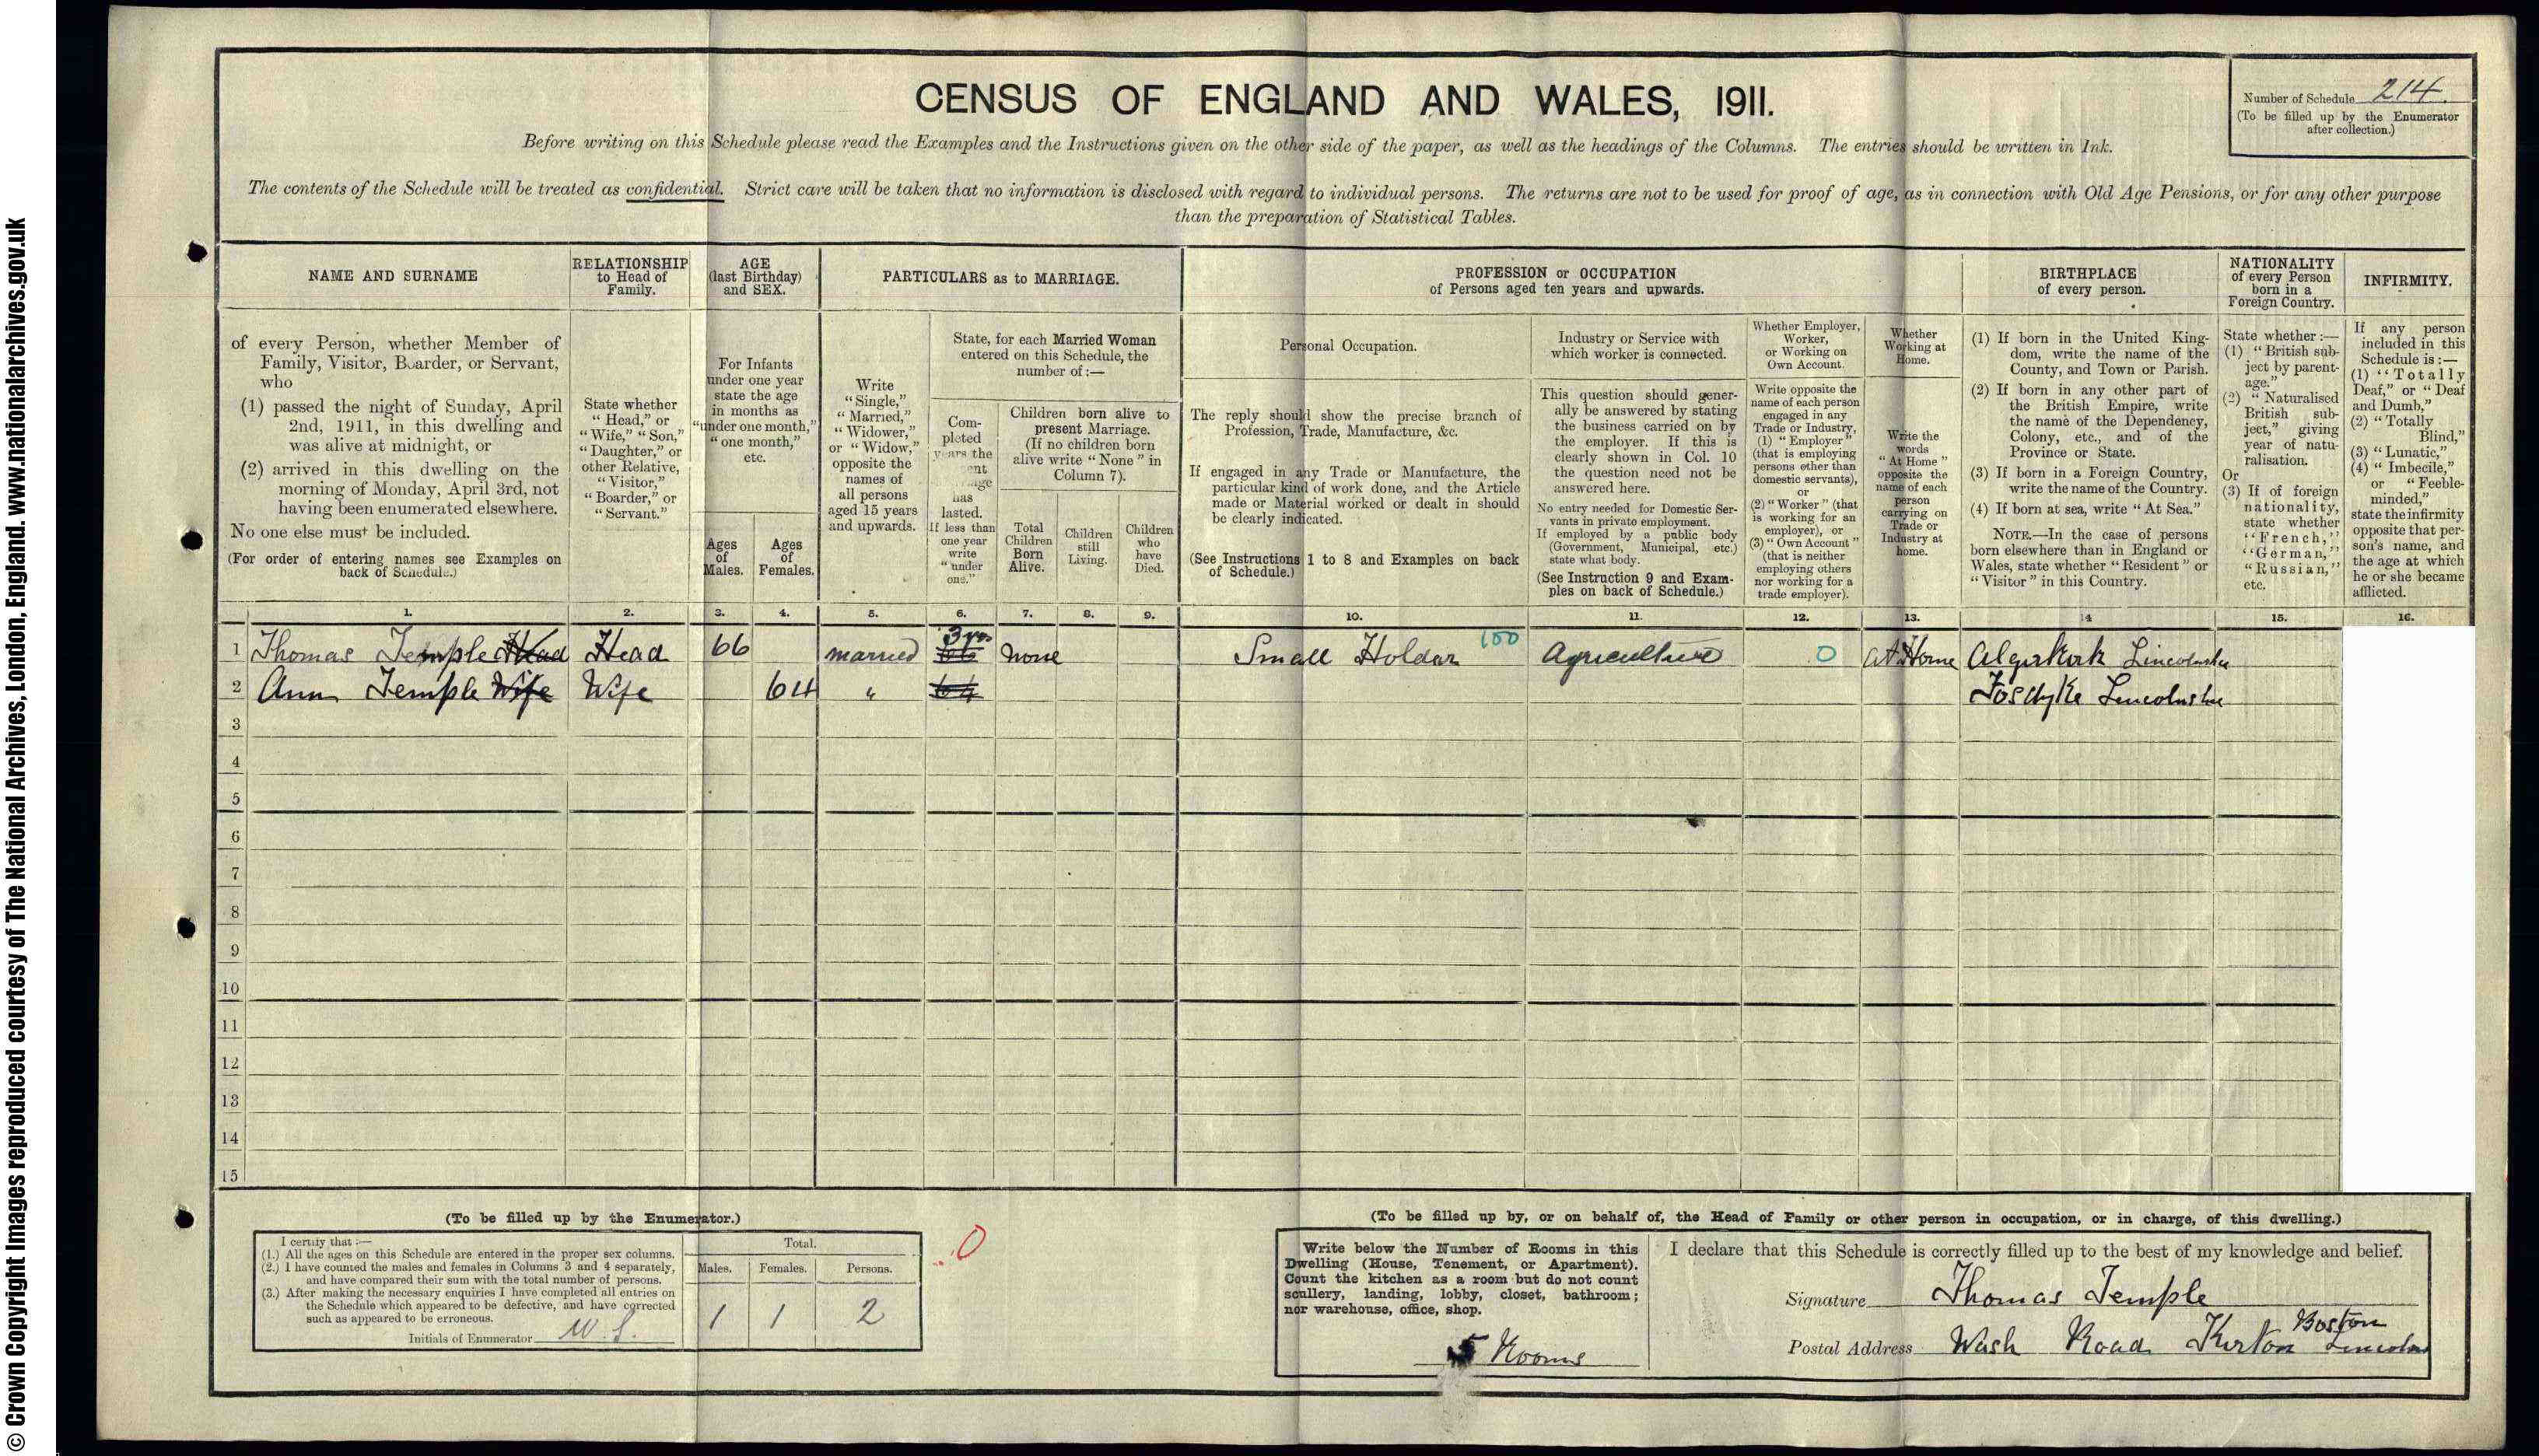 © Crown Copyright Images reproduced courtesy of The National Archives, London, England. www.nationalarchives.gov.uk
CENSUS OF ENGLAND AND WALES, 1911.
Number of Schedule 214.
(To be filled up by the Enumerator
after collection.)
Before writing on this Schedule please read the Examples and the Instructions given on the other side of the paper, as well as the headings of the Columns. The entries should be written in Ink.
The contents of the Schedule will be treated as confidential. Strict care will be taken that no information is disclosed with regard to individual persons. The returns are not to be used for proof of age, as in connection with Old Age Pensions, or for any other purpose
than the preparation of Statistical Tables.
NAME AND SURNAME
of every Person, whether Member of
Family, Visitor, Boarder, or Servant,
who
(1) passed the night of Sunday, April
2nd, 1911, in this dwelling and
was alive at midnight, or
(2) arrived in this dwelling on the
morning of Monday, April 3rd, not
having been enumerated elsewhere.
No one else must be included.
(For order of entering names see Examples on
back of Schedule.)
RELATIONSHIP
to Head of
Family.
State whether
"Head," or
"Wife," "Son,"
"Daughter," or
other Relative,
"Visitor,"
"Boarder," or
"Servant."
AGE
(last Birthday)
and SEX.
For Infants
under one year
state the age
in months as
"under one month,"
"one month,"
etc.
Ages
of
Males.
Ages
of
Females.
PARTICULARS as to MARRIAGE.
Write
"Single,"
"Married,"
"Widower,"
or "Widow,"
opposite the
names of
all persons
aged 15 years
and upwards.
State, for each Married Woman
entered on this Schedule, the
number of :—
Com-
pleted
years the
ent
age
has
lasted.
If less than
one year
write
"under
one."
Children born alive to
present Marriage.
(If no children born
alive write "None" in
Column 7).
Total
Children
Born
Alive.
Children
still
Living.
Children
who
have
Died.
PROFESSION or OCCUPATION
of Persons aged ten years and upwards.
Personal Occupation.
The reply should show the precise branch of
Profession, Trade, Manufacture, &c.
If engaged in any Trade or Manufacture, the
particular kind of work done, and the Article
made or Material worked or dealt in should
be clearly indicated.
(See Instructions 1 to 8 and Examples on back
of Schedule.)
Industry or Service with
which worker is connected.
This question should gener-
ally be answered by stating
the business carried on by
the employer. If this is
clearly shown in Col. 10
the question need not be
answered here.
No entry needed for Domestic Ser-
vants in private employment.
If employed by a public body
(Government, Municipal, etc.)
state what body.
(See Instruction 9 and Exam-
ples on back of Schedule.)
Whether Employer,
Worker,
or Working on
Own Account.
Write opposite the
name of each person
engaged in any
Trade or Industry,
(1) "Employer"
(that is employing
persons other than
domestic servants),
or
(2) "Worker" (that
is working for an
employer), or
(3) "Own Account"
(that is neither
employing others
nor working for a
trade employer).
Whether
Working at
Home.
Write the
words
"At Home"
opposite the
name of each
person
carrying on
Trade or
Industry at
home.
BIRTHPLACE
of every person.
(1) If born in the United King-
dom, write the name of the
County, and Town or Parish.
(2) If born in any other part of
the British Empire, write
the name of the Dependency,
Colony, etc., and of the
Province or State.
(3) If born in a Foreign Country,
write the name of the Country.
(4) If born at sea, write "At Sea."
NOTE.—In the case of persons
born elsewhere than in England or
Wales, state whether "Resident" or
"Visitor" in this Country.
NATIONALITY
of every Person
born in a
Foreign Country.
State whether :—
(1) "British sub-
ject by parent-
age."
(2) "Naturalised
British sub-
ject," giving
year of natu-
ralisation.
Or
(3) If of foreign
nationality,
state whether
"French,"
"German,"
"Russian,"
etc.
INFIRMITY.
If any person
included in this
Schedule is :—
(1) "Totally
Deaf," or "Deaf
and Dumb,"
(2) "Totally
Blind,"
(3) "Lunatic,"
(4) "Imbecile,"
or "Feeble-
minded,"
state the infirmity
opposite that per-
son's name, and
the age at which
he or she became
afflicted.
1. 2. 3. 4. 5. 6. 7. 8. 9. 10. 11. 12. 13. 14 15. 16.
1 Thomas Temple Head Head 66 married 3 yrs 66 None Small Holder 100 Agriculture 0 At Home Algarkirk Lincolnshire
2 Ann Temple Wife Wife 64 " 64 Fosdyke Lincolnshire
3
4
5
6
7
8
9
10
11
12
13
14
15
(To be filled up by the Enumerator.)
I certify that :—
(1.) All the ages on this Schedule are entered in the proper sex columns.
(2.) I have counted the males and females in Columns 3 and 4 separately,
and have compared their sum with the total number of persons.
(3.) After making the necessary enquiries I have completed all entries on
the Schedule which appeared to be defective, and have corrected
such as appeared to be erroneous.
Initials of Enumerator W. S.
Total.
Males. Females. Persons.
1 1 2
0
(To be filled up by, or on behalf of, the Head of Family or other person in occupation, or in charge, of this dwelling.)
Write below the Number of Rooms in this
Dwelling (House, Tenement, or Apartment).
Count the kitchen as a room but do not count
scullery, landing, lobby, closet, bathroom;
nor warehouse, office, shop.
5 Rooms
I declare that this Schedule is correctly filled up to the best of my knowledge and belief.
Signature Thomas Temple
Postal Address Wash Road Kirton Boston Lincoln